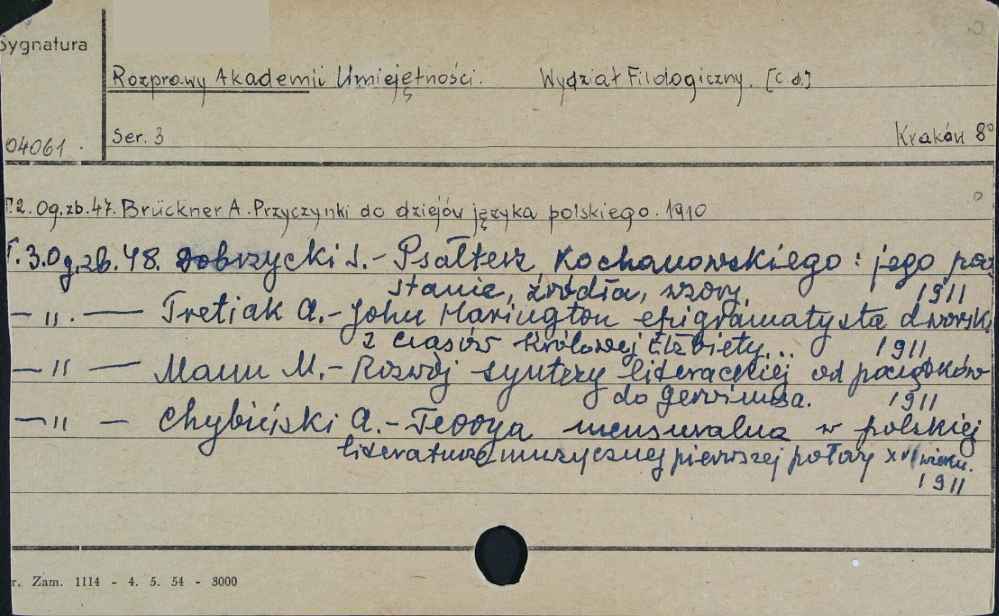 Sygnatura
Rozprawy Akademii Umiejętności. Wydział Filologiczny. [c.d.]
04061. Ser. 3 Kraków 8°
T.2. Og.zb.47. Brückner A. Przyczynki do dziejów języka polskiego. 1910
T.3. Og.zb.48. Dobrzycki S. - Psałterz Kochanowskiego : jego pow
stanie, źródła, wzory. 1911
— " — Tretiak A. - John Harington epigramatysta dworski
z czasów Królowej Elżbiety... 1911
— " — Mann M. - Rozwój syntezy literackiej od początków
do Gervinusa. 1911
— " — Chybiński A. - Teorya mensuralna w polskiej
literaturze muzycznej pierwszej połowy XVI wieku.
1911
r. Zam. 1114 - 4. 5. 54 - 3000